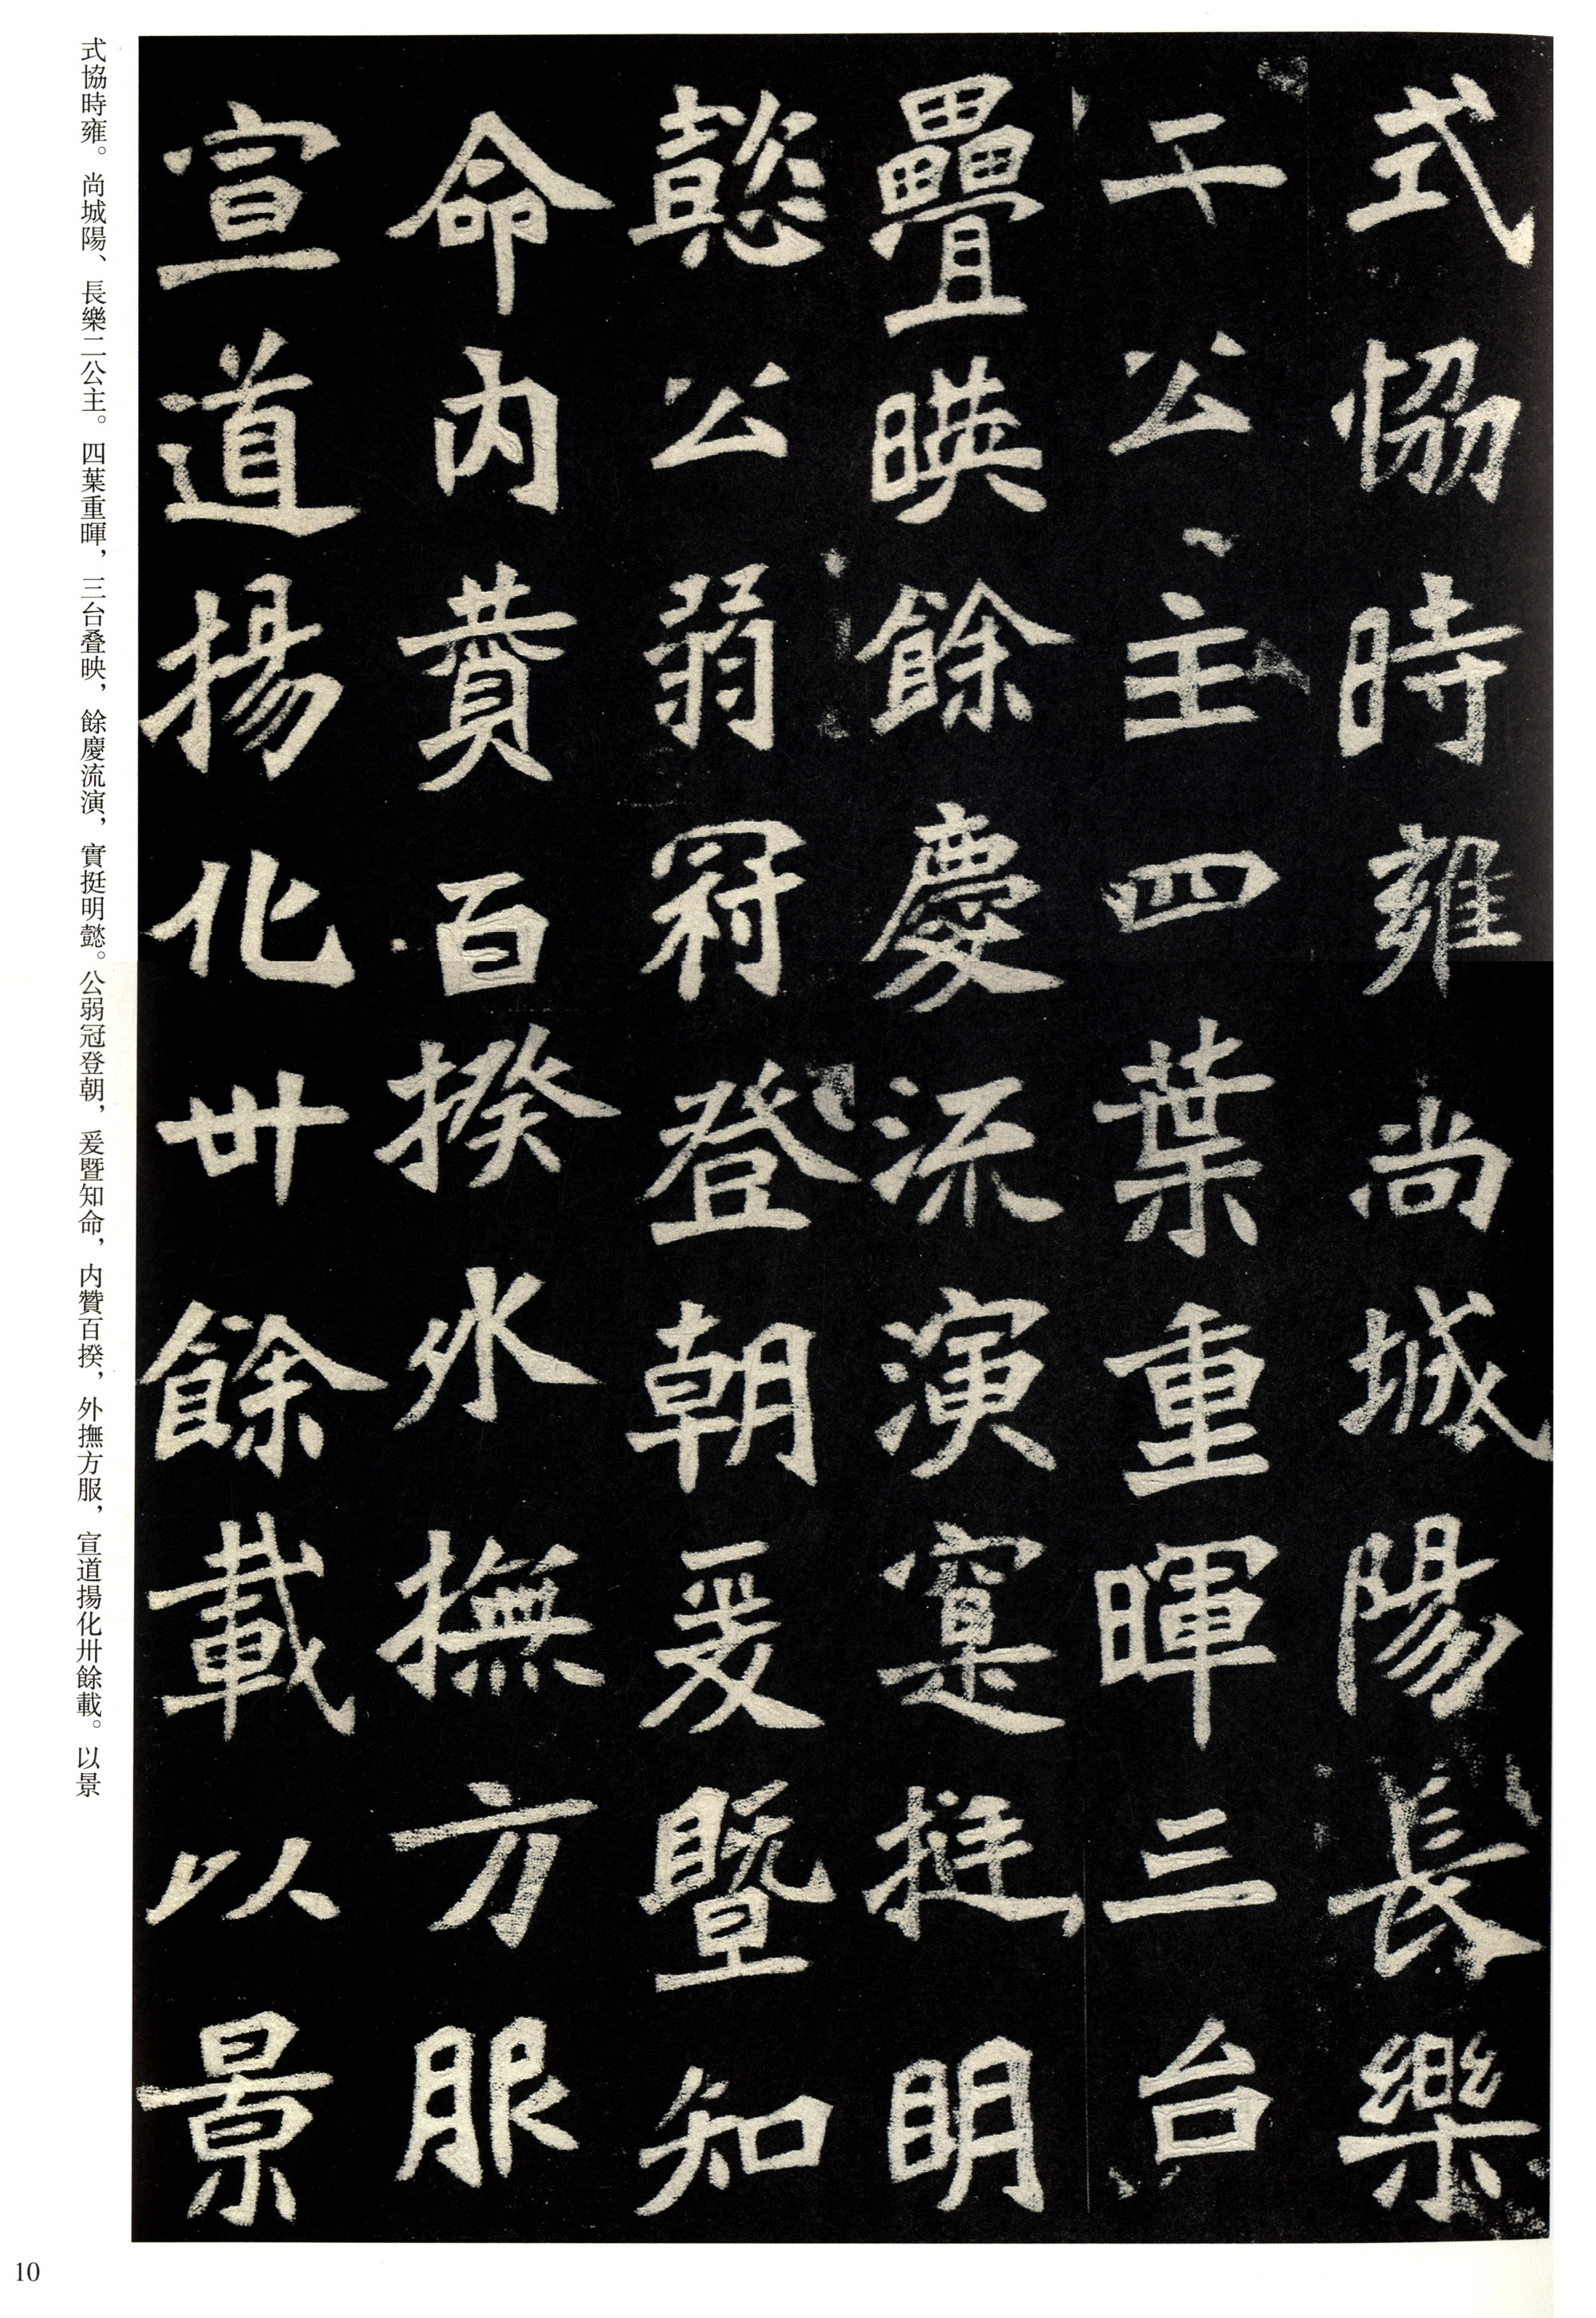 式恊時雍尚城陽長樂
二公主四葉重暉三台
疊暎餘慶流演寔挺明
懿公弱冠登朝爰暨知
命內賛百揆外撫方服
宣道揚化卅餘載以景
式協時雍。尚城陽、長樂二公主。四葉重暉，三台叠映，餘慶流演，實挺明懿。公弱冠登朝，爰暨知命，内贊百揆，外撫方服，宣道揚化卅餘載。以景
10